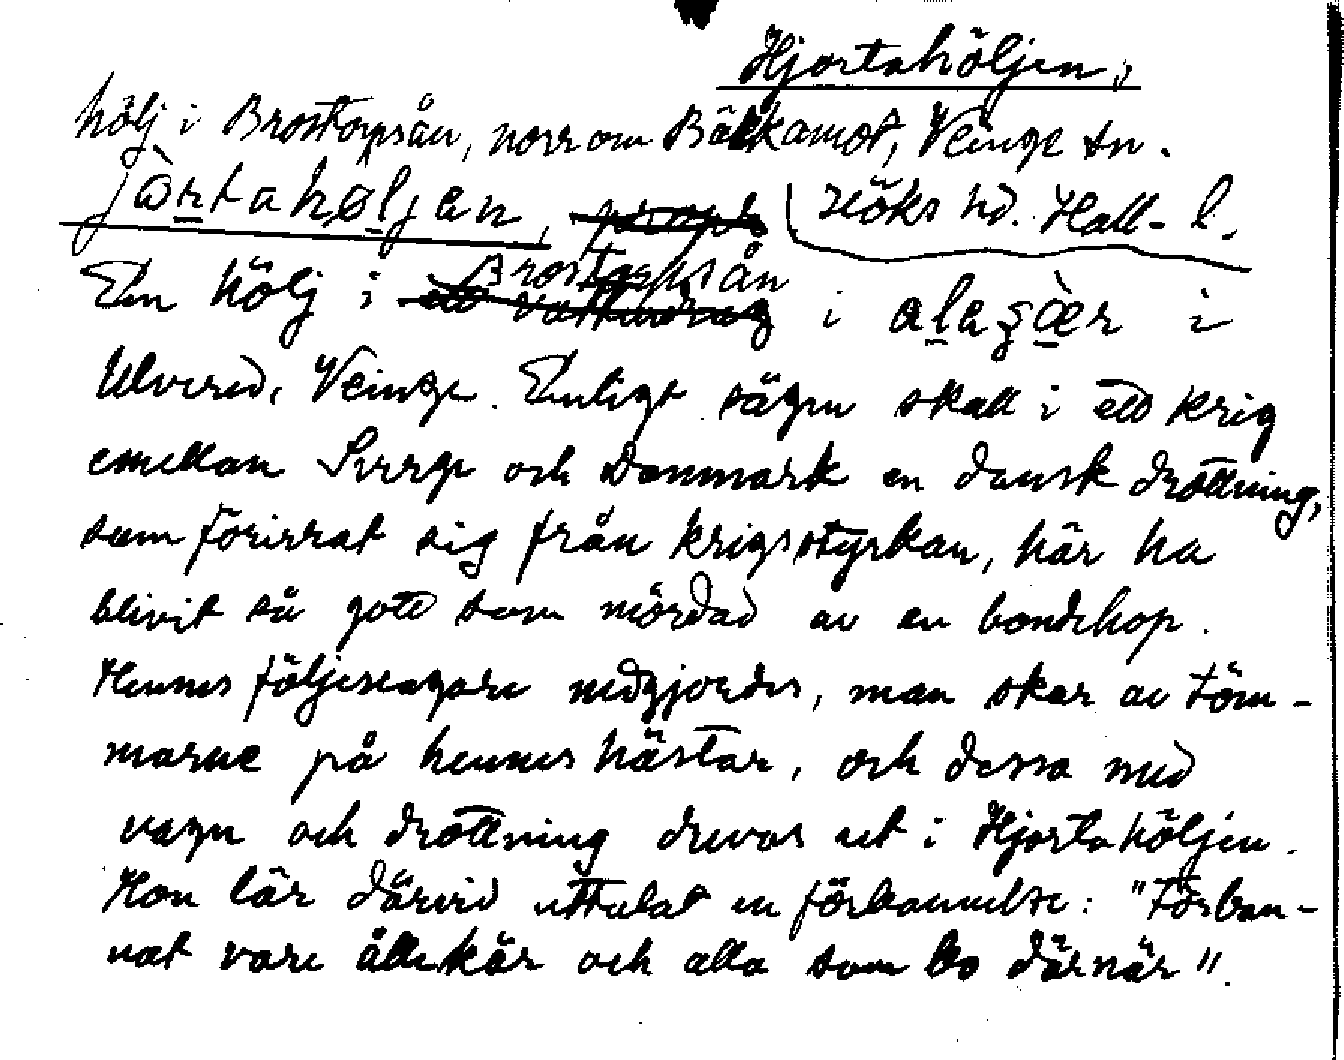 Hjortahöljen,
hölj i Brostorpsån, norr om Bäckamot, Veinge sn.
jòrtahøljan, Höks hd. Hall-l.
En hölj i Brostorpsån i alaʒæ̀r i
Ulvered, Veinge. Enligt sägen skall i ett krig
emellan Sverge och Danmark en dansk drottning,
som förirrat sig från krigsstyrkan, här ha
blivit så gott som mördad av en bondehop.
Hennes följeslagare nedgjordes, man skar av töm-
marne på hennes hästar, och dessa med
vagn och drottning drevos ut i Hjortahöljen.
Hon lär därvid uttalat en förbannelse: "Förban-
nat vare ållekär och alla som bo därnär".